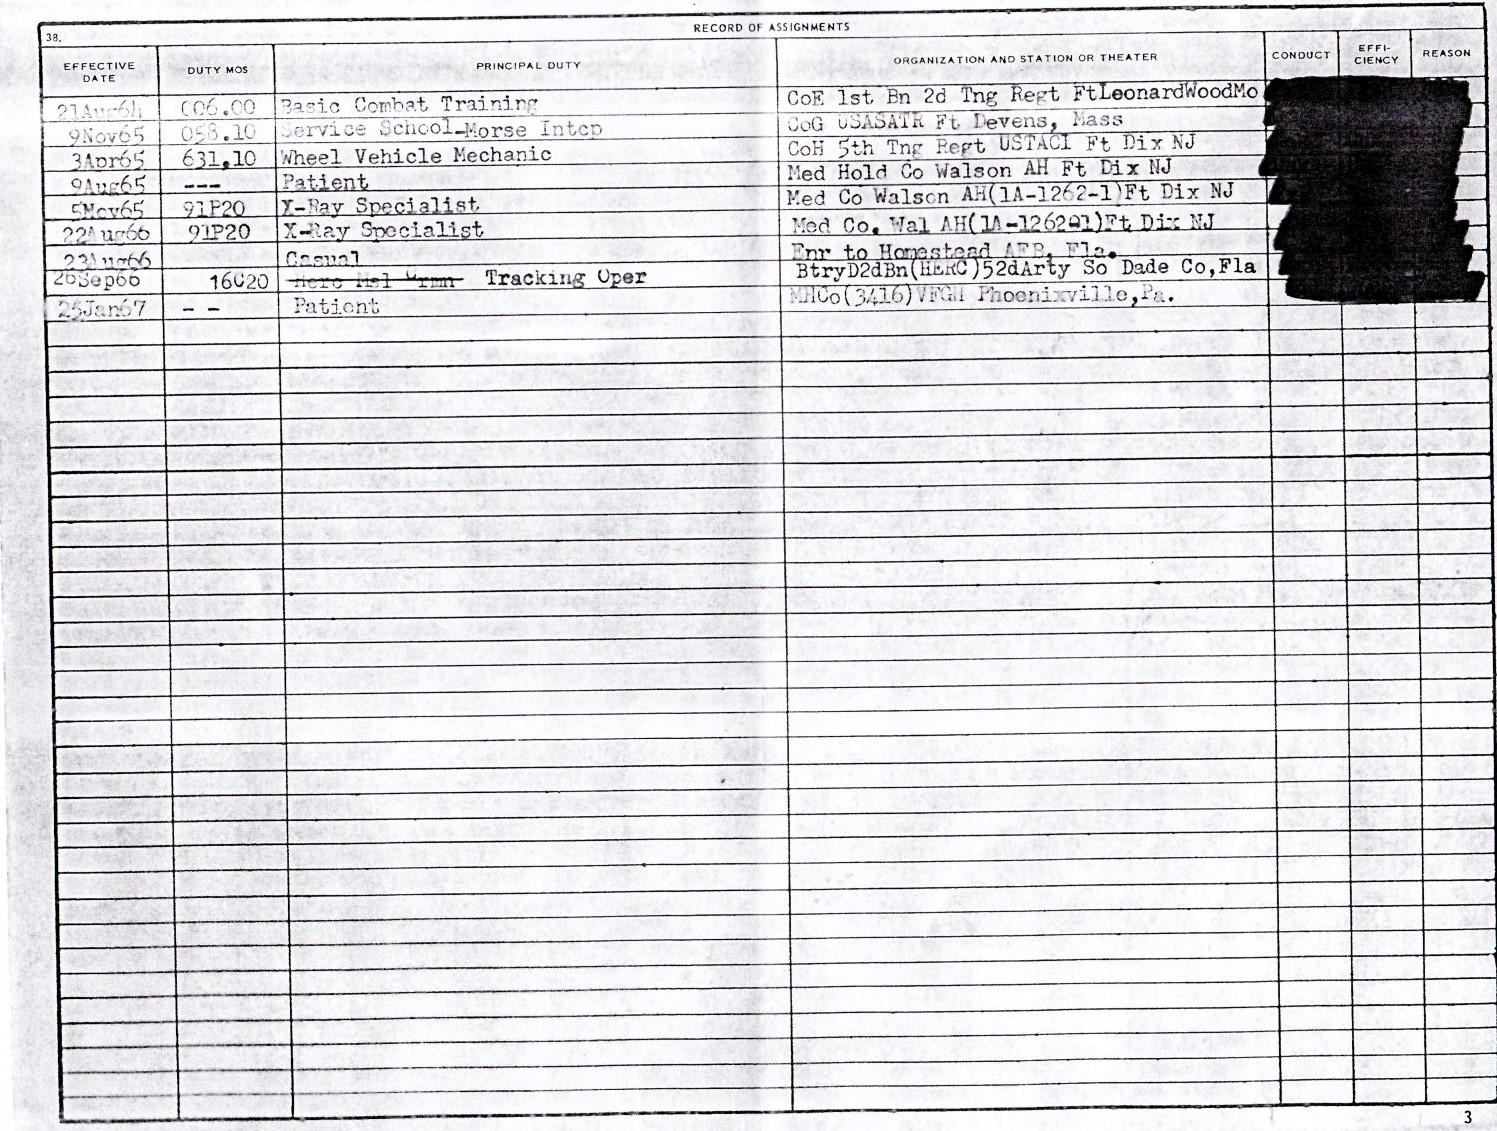 38.
RECORD OF ASSIGNMENTS
EFFECTIVE DATE DUTY MOS PRINCIPAL DUTY ORGANIZATION AND STATION OR THEATER CONDUCT EFFI-CIENCY REASON
21Aug64 006.00 Basic Combat Training CoE 1st Bn 2d Tng Regt FtLeonardWoodMo
9Nov65 058.10 Service School-Morse Intcp CoG USASATR Ft Devens, Mass
3Apr65 631.10 Wheel Vehicle Mechanic CoH 5th Tng Regt USTACI Ft Dix NJ
9Aug65 --- Patient Med Hold Co Walson AH Ft Dix NJ
5Nov65 91P20 X-Ray Specialist Med Co Walson AH(1A-1262-1)Ft Dix NJ
22Aug66 91P20 X-Ray Specialist Med Co. Wal AH(1A-1262-1)Ft Dix NJ
23Aug66 Casual Enr to Homestead AFB, Fla.
26Sep66 16C20 Herc Msl Crmn Tracking Oper BtryD2dBn(HERC)52dArty So Dade Co,Fla
25Jan67 -- Patient MHCo(3416)VFGH Phoenixville,Pa.
3